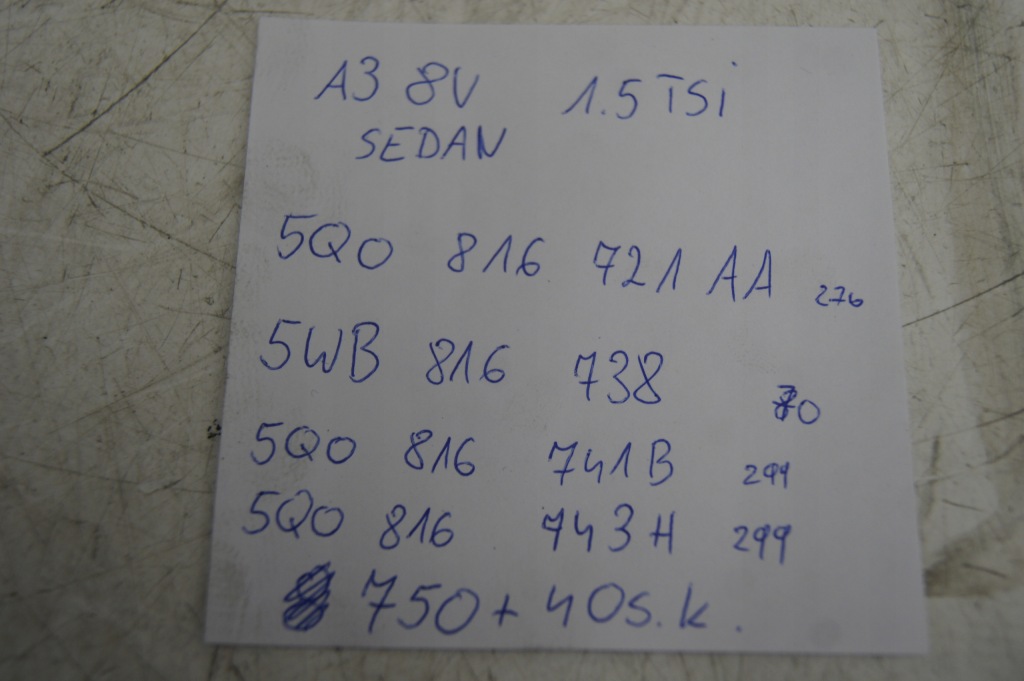 A3 8V 1.5 TSi
SEDAN
5Q0 816 721 AA 276
5WB 816 738 70
5Q0 816 741 B 299
5Q0 816 743 H 299
750 + 40 s.k.